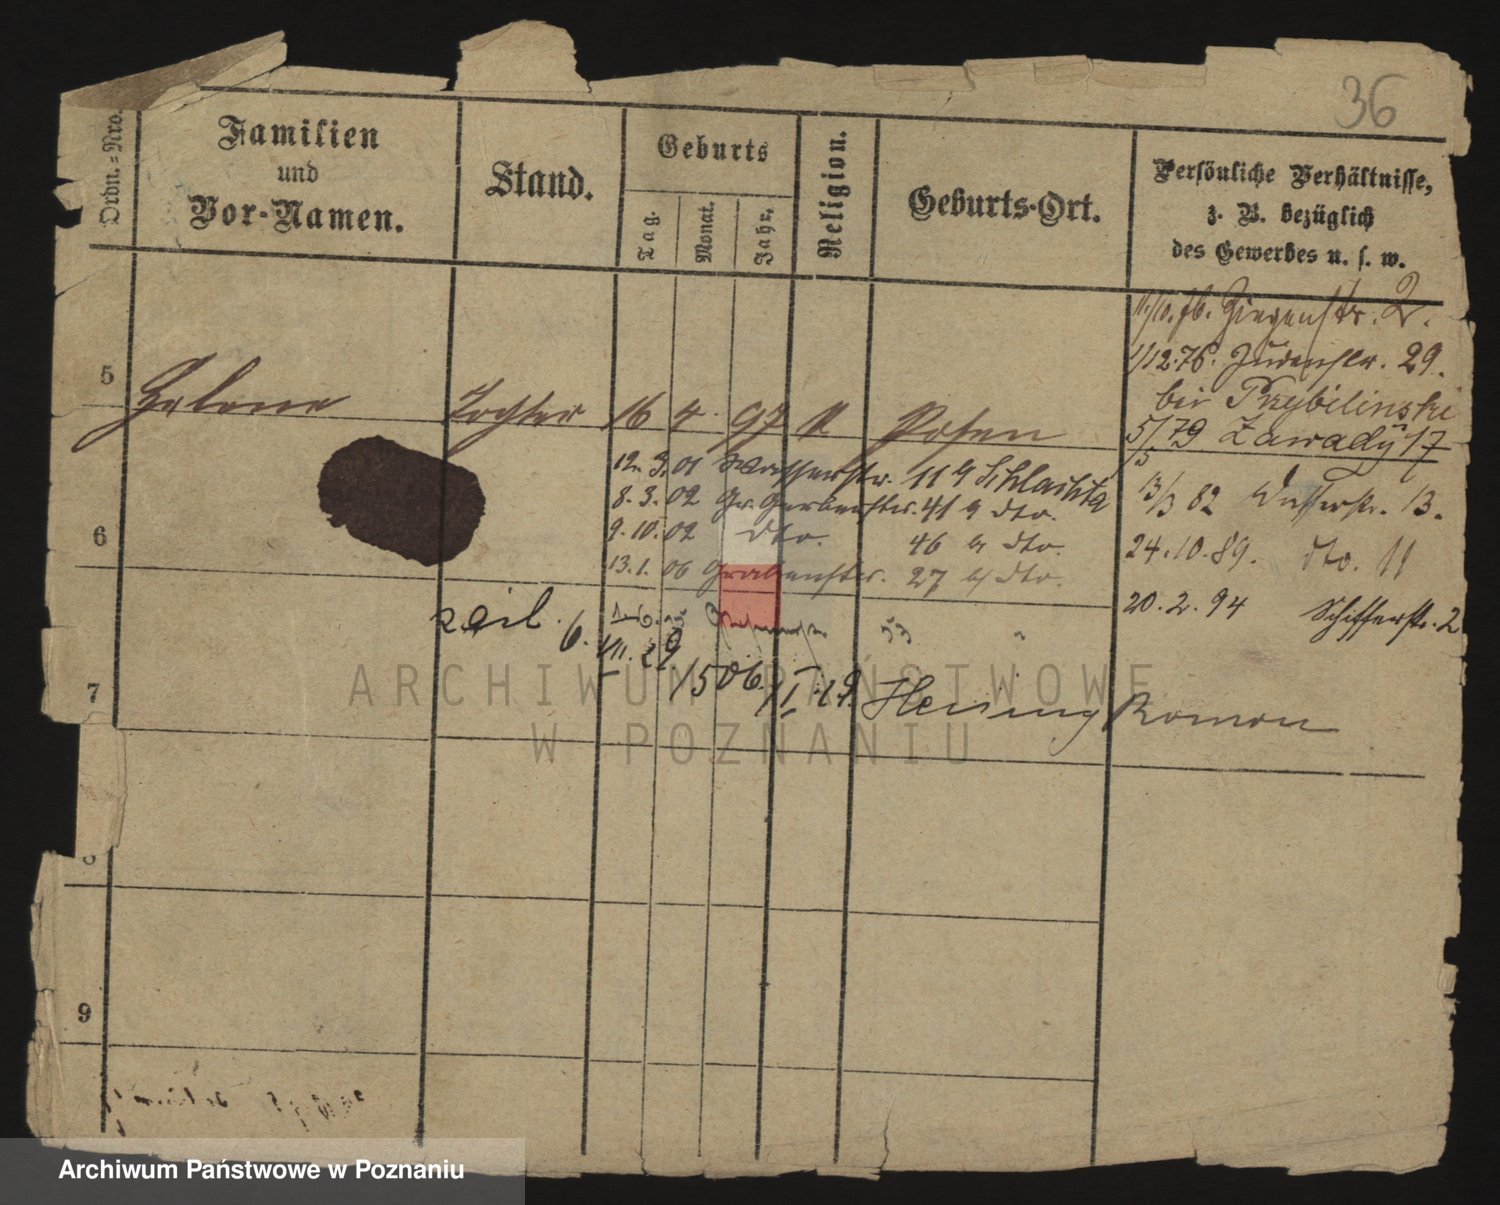 36
Ordn.-Nro.
Familien
und
Vor-Namen.
Stand.
Geburts
Tag.
Monat.
Jahr.
Religion.
Geburts-Ort.
Persönliche Verhältnisse,
z. B. bezüglich
des Gewerbes u. s. w.
11/10. 76. Ziegenstr. 2.
1/12.76. Judenstr. 29.
bei Przybilinski
5/5 79 Zawady 17
5 Helene Tochter 16 4 97 K Posen
12. 3. 01 Wasserstr. 11 b Schlachta
8. 3. 02 Gr. Gerberstr. 41 b dto.
9. 10. 02 dto. 46 b dto.
13. 1. 06 Grabenstr. 27 b dto.
13/3 82 Wasserstr. 13.
24.10.89. dto. 11
20. 2. 94 Schifferstr. 2
6
6. VII. 29
7
1506. II. 19. Roman
9
ARCHIWUM PAŃSTWOWE
W POZNANIU
Archiwum Państwowe w Poznaniu